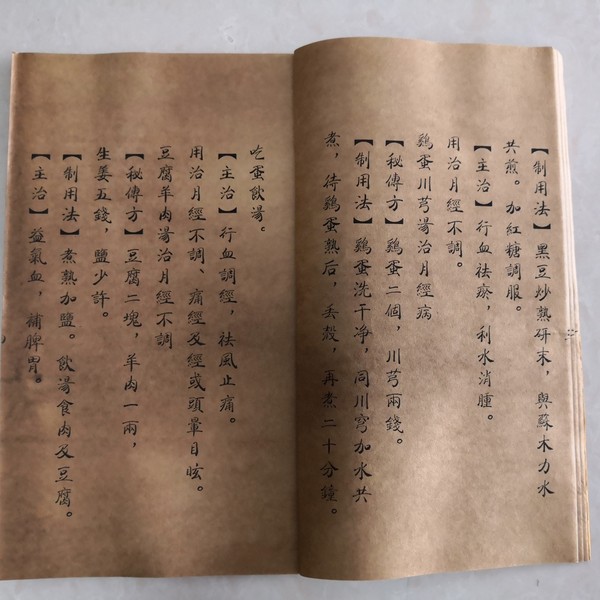 【制用法】黑豆炒熟研末，與蘇木力水
共煎。加紅糖調服。
【主治】行血祛瘀，利水消腫。
用治月經不調。
鷄蛋川芎湯治月經病
【秘傳方】鷄蛋二個，川芎兩錢。
【制用法】鷄蛋洗干净，同川穹加水共
煮，待鷄蛋熟后，丢殼，再煮二十分鐘。
吃蛋飲湯。
【主治】行血調經，祛風止痛。
用治月經不調、痛經及經或頭暈目眩。
豆腐羊肉湯治月經不調
【秘傳方】豆腐二塊，羊肉一兩，
生姜五錢，鹽少許。
【制用法】煮熟加鹽。飲湯食肉及豆腐。
【主治】益氣血，補脾胃。